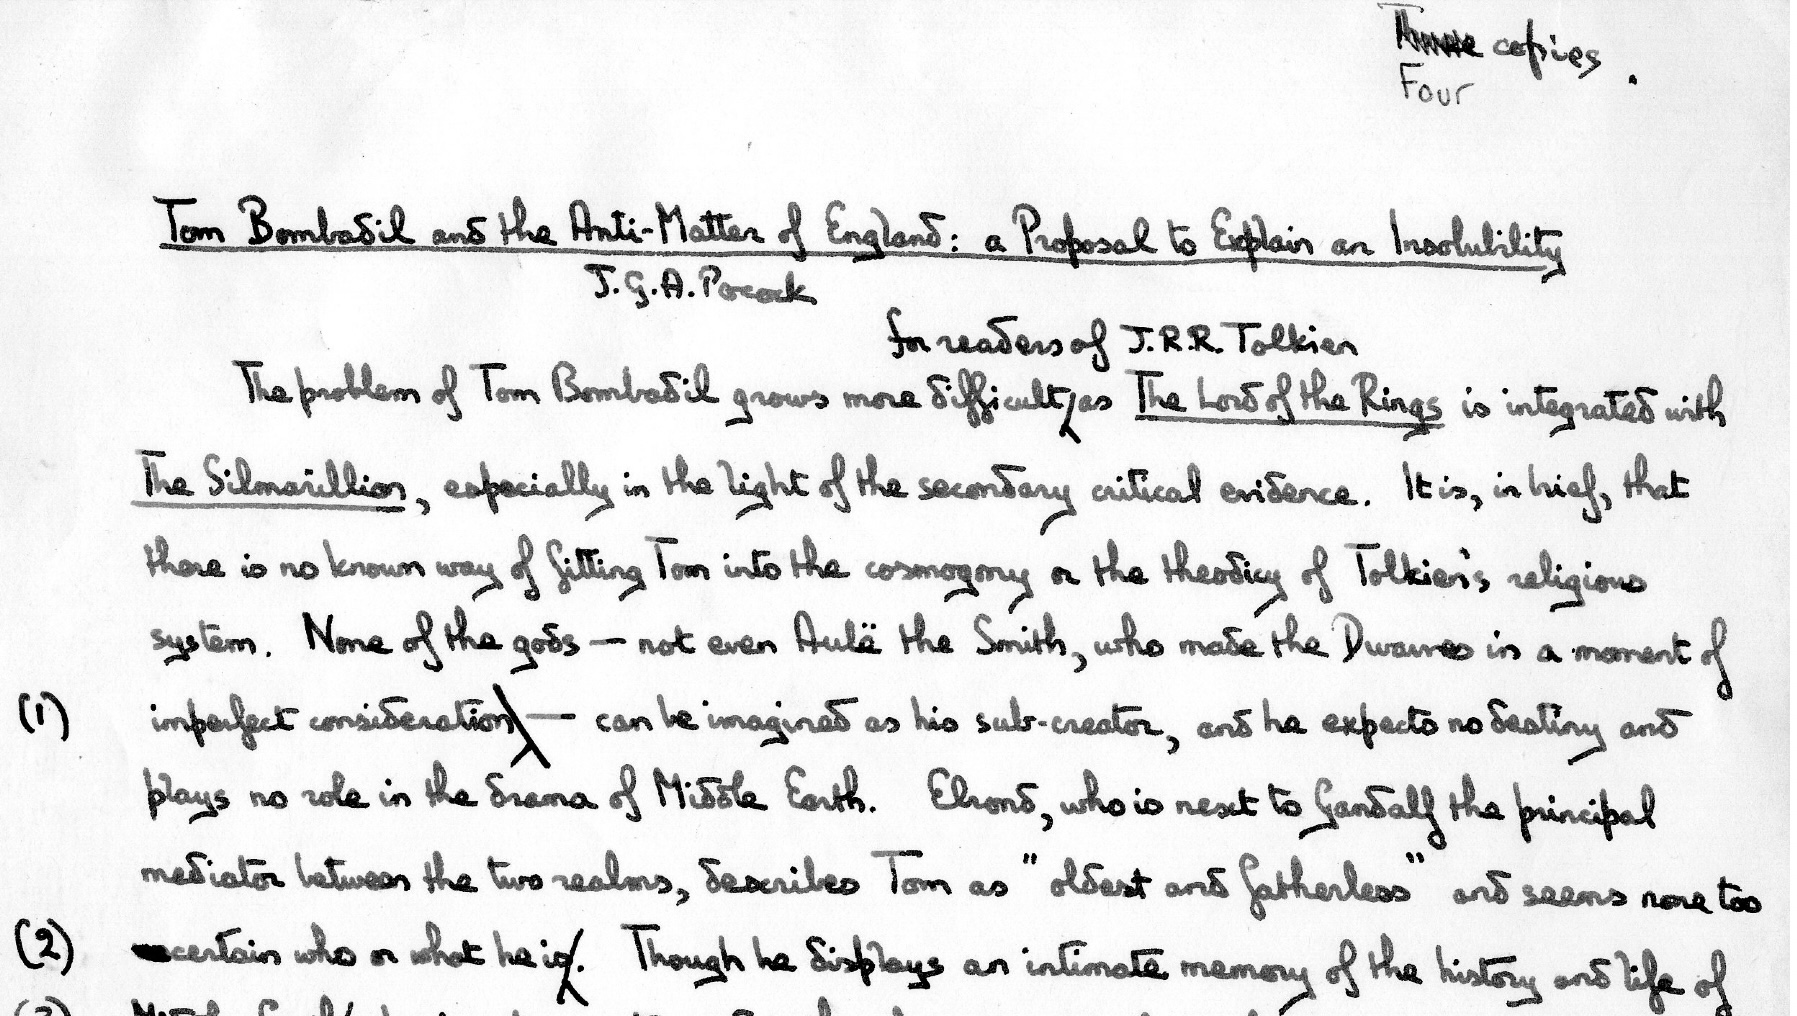 Three copies.
Four
Tom Bombadil and the Anti-Matter of England: a Proposal to Explain an Insolubility
J.G.A. Pocock
for readers of J.R.R. Tolkien
The problem of Tom Bombadil grows more difficult, as The Lord of the Rings is integrated with
The Silmarillion, especially in the light of the secondary critical evidence. It is, in brief, that
there is no known way of fitting Tom into the cosmogony or the theodicy of Tolkien's religious
system. None of the gods — not even Aulë the Smith, who made the Dwarves in a moment of
(1) imperfect consideration — can be imagined as his sub-creator, and he expects no destiny and
plays no role in the drama of Middle Earth. Elrond, who is next to Gandalf the principal
mediator between the two realms, describes Tom as "oldest and fatherless" and seems none too
(2) certain who or what he is. Though he displays an intimate memory of the history and life of
(3)